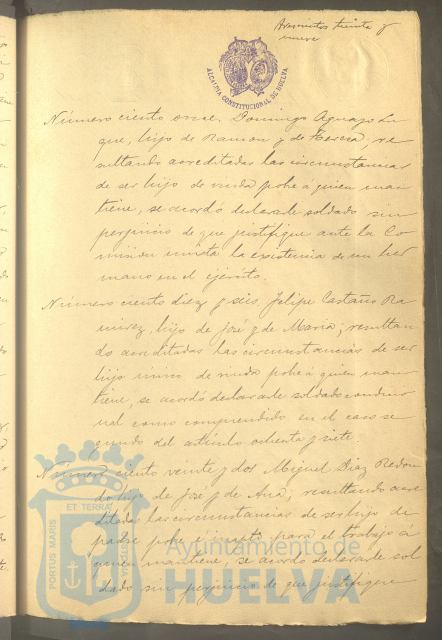 Doscientos treinta y
nueve
ALCALDIA CONSTITUCIONAL DE HUELVA
Número ciento once. Domingo Aguazo Lu
que, hijo de Ramon y de Teresa, re
sultando acreditadas las circunstancias
de ser hijo de viuda pobre á quien man
tiene, se acordó declararle soldado sin
perjuicio de que justifique ante la Co
mision mixta la existencia de un her
mano en el ejército.
Número ciento diez y seis, Felipe Castaño Ra
mirez, hijo de José y de Maria; resultan
do acreditadas las circunstancias de ser
hijo único de viuda pobre á quien man
tiene, se acordó declararle soldado condicio
nal como comprendido en el caso se
gundo del artículo ochenta y siete.
Número ciento veinte y dos Miguel Diaz Redon
do hijo de José y de Ana, resultando acre
ditadas las circunstancias de ser hijo de
padre pobre é inepto para el trabajo á
quien mantiene, se acordó declararle sol
dado sin perjuicio de que justifique
PORTUS MARIS ET TERRAE CUSTODIA
Ayuntamiento de
HUELVA